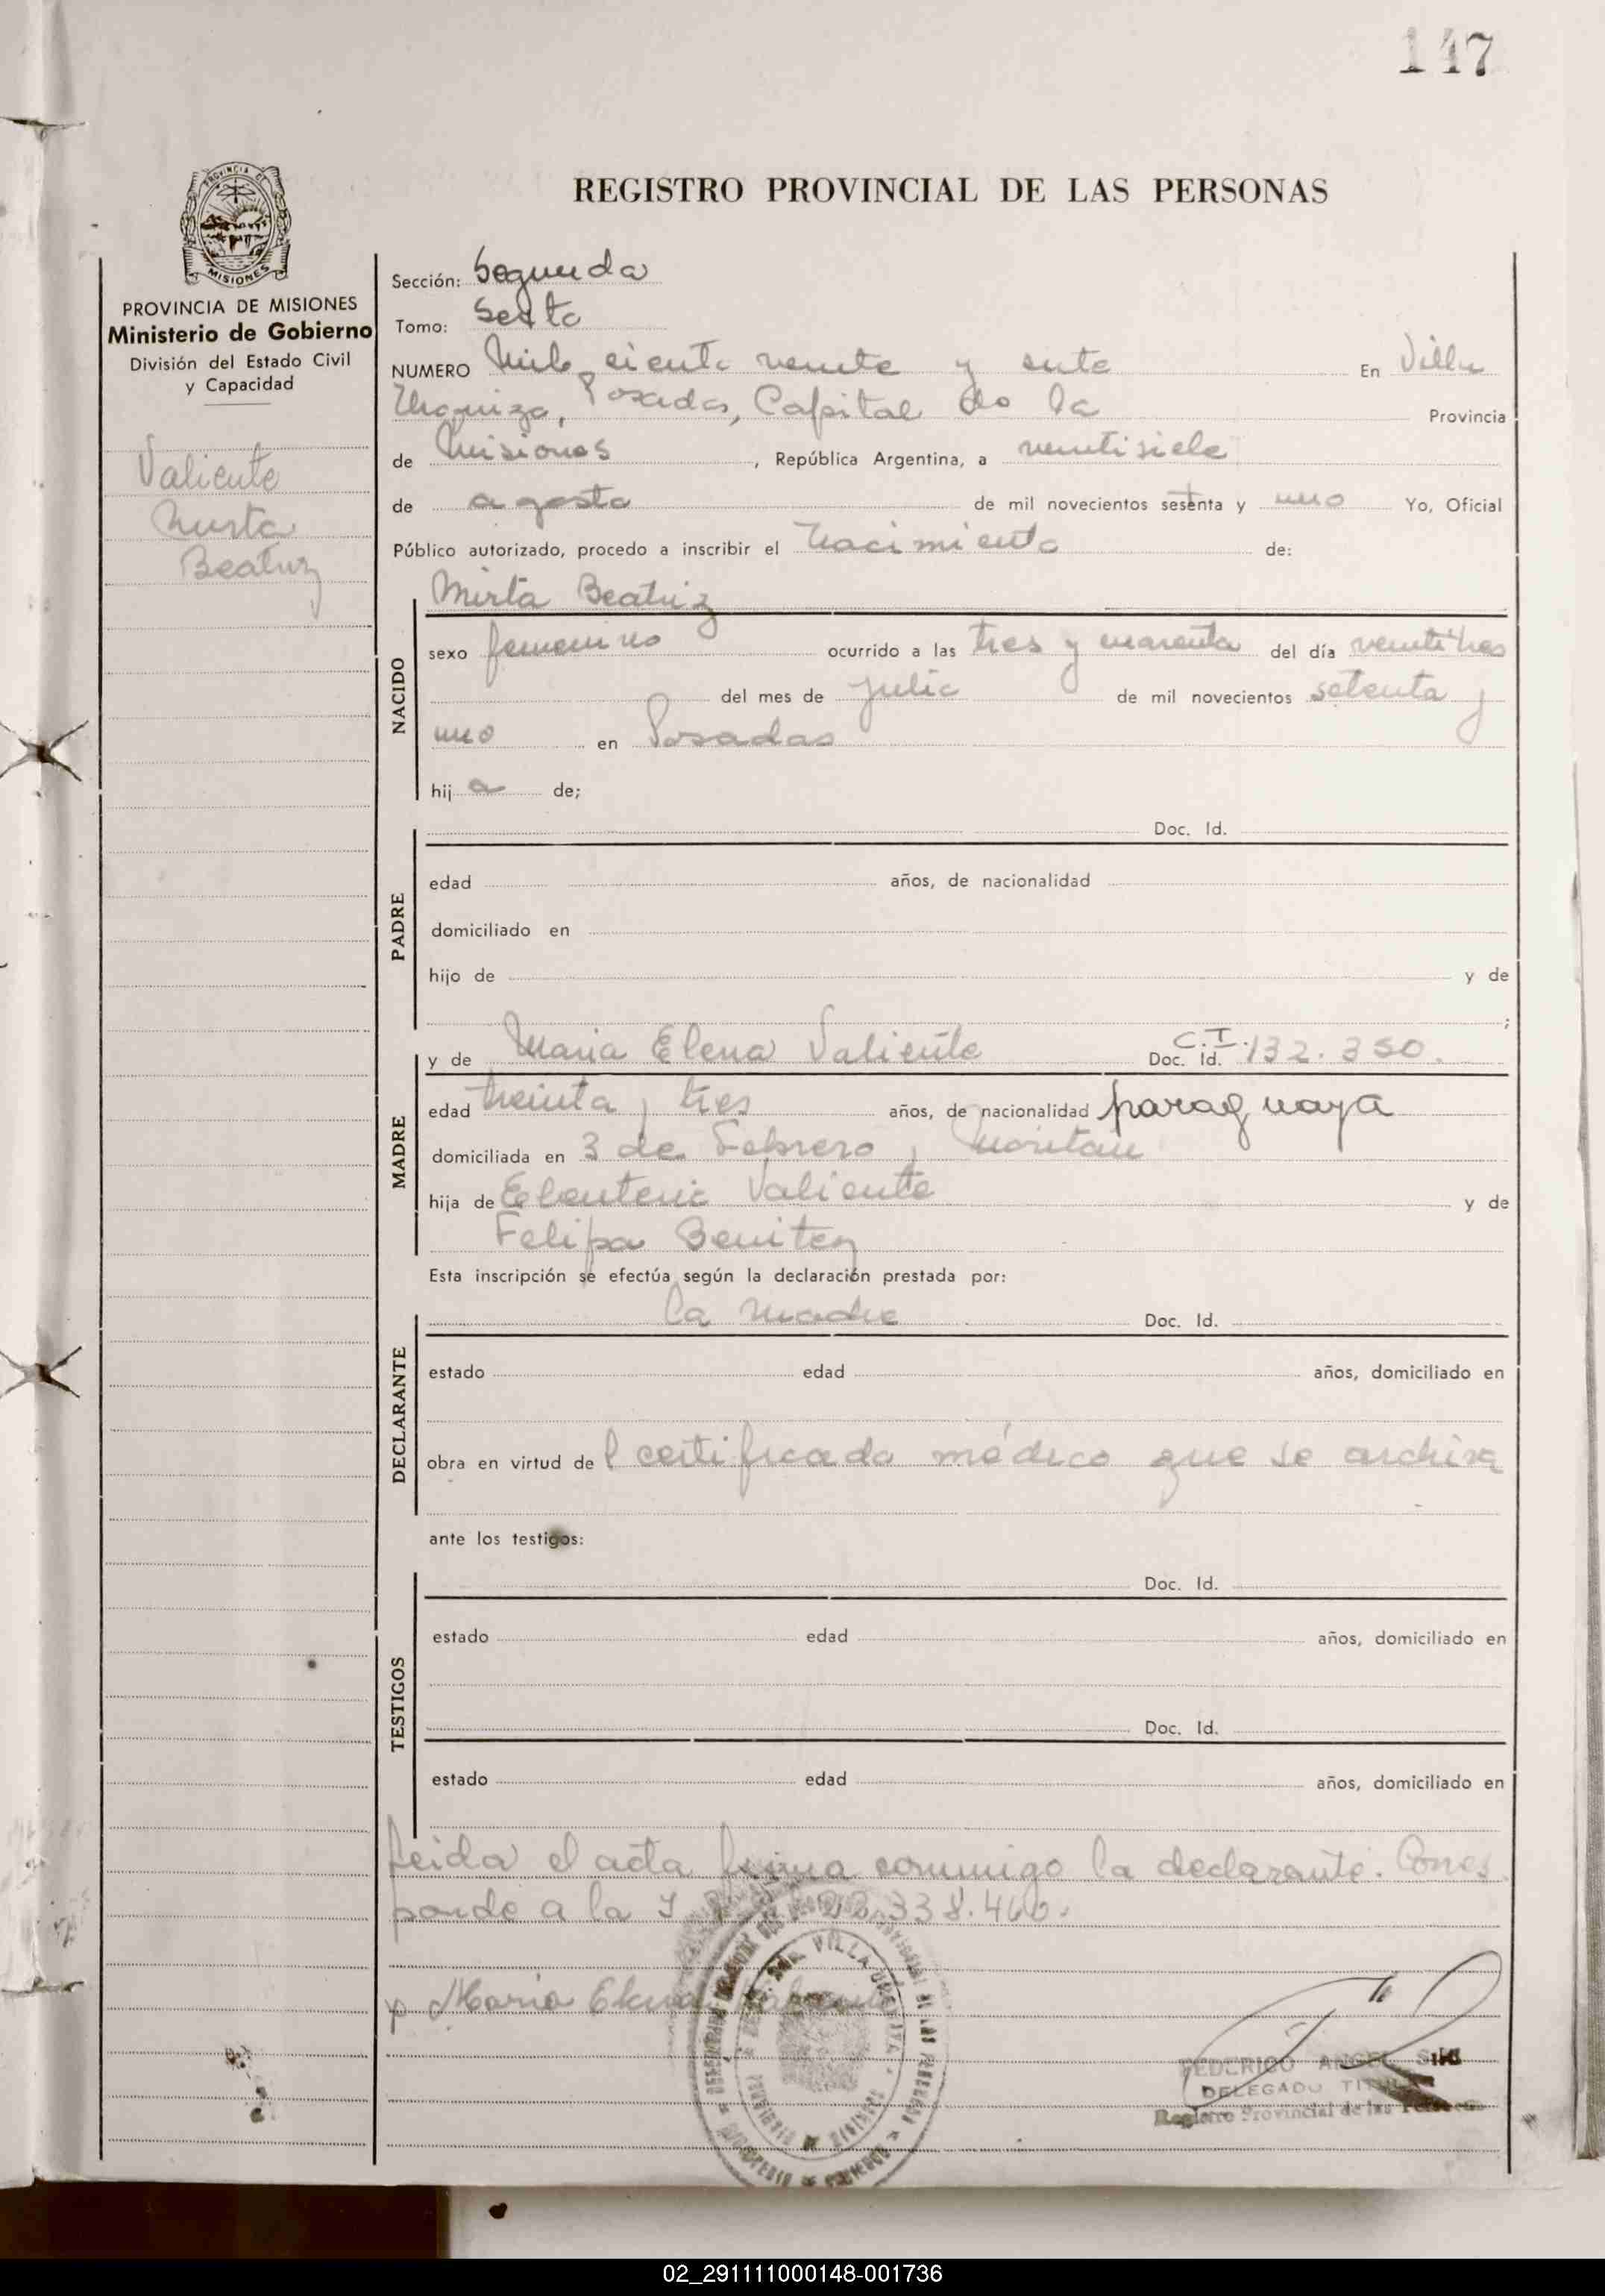 147
REGISTRO PROVINCIAL DE LAS PERSONAS
PROVINCIA DE MISIONES
MISIONES
PROVINCIA DE MISIONES
Ministerio de Gobierno
División del Estado Civil
y Capacidad
Valiente
Mirta
Beatriz
Sección: Segunda
Tomo: Sexto
NUMERO Mil ciento veinte y siete En Villa
Urquiza, Posadas, Capital de la Provincia
de Misiones, República Argentina, a veintisiete
de agosto de mil novecientos sesenta y uno Yo, Oficial
Público autorizado, procedo a inscribir el nacimiento de:
Mirta Beatriz
NACIDO
sexo femenino ocurrido a las tres y cuarenta del día veintitres
del mes de julio de mil novecientos setenta y
uno en Posadas
hij a de;
PADRE
Doc. Id.
edad años, de nacionalidad
domiciliado en
hijo de y de
;
MADRE
y de Maria Elena Valiente Doc. Id. C.I. 132.350.
edad treinta y tres años, de nacionalidad paraguaya
domiciliada en 3 de Febrero y
hija de Eleuterio Valiente y de
Felipa Benitez
Esta inscripción se efectúa según la declaración prestada por:
DECLARANTE
la madre Doc. Id.
estado edad años, domiciliado en
obra en virtud de l certificado médico que se archiva
ante los testigos:
TESTIGOS
Doc. Id.
estado edad años, domiciliado en
Doc. Id.
estado edad años, domiciliado en
Leida el acta firma conmigo la declarante. Corres
ponde a la 338.460.
x Maria Elena
VILLA URQUIZA
FEDERICO ANGEL
DELEGADO TITULAR
Registro Provincial de las Personas
02_291111000148-001736